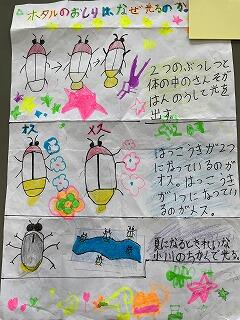 ホタルのおしりは、なぜ光るのか
２つのぶっしつと
体の中のさんそが
はんのうして光を
出す。
オス
メス
はっこうきが２つ
になっているのが
オス。はっこうき
が１つになってい
るのがメス。
夏になるときれいな
小川のちかくで光る。